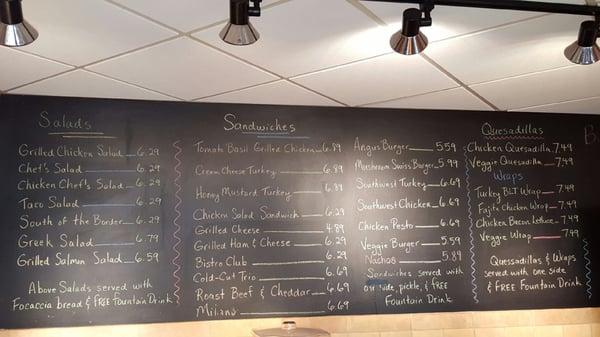 Salads
Grilled Chicken Salad 6.29
Chef's Salad 6.29
Chicken Chef's Salad 6.29
Taco Salad 6.29
South of the Border 6.29
Greek Salad 6.79
Grilled Salmon Salad 6.59
Above Salads served with
Focaccia bread & FREE Fountain Drink
Sandwiches
Tomato Basil Grilled Chicken 6.89
Cream Cheese Turkey 6.89
Honey Mustard Turkey 6.89
Chicken Salad Sandwich 6.29
Grilled Cheese 4.89
Grilled Ham & Cheese 6.29
Bistro Club 6.29
Cold-Cut Trio 6.69
Roast Beef & Cheddar 6.69
Milano 6.69
Angus Burger 5.59
Mushroom Swiss Burger 5.99
Southwest Turkey 6.69
Southwest Chicken 6.69
Chicken Pesto 6.69
Veggie Burger 5.59
Nachos 5.89
Sandwiches served with
one side, pickle, & FREE
Fountain Drink
Quesadillas
Chicken Quesadilla 7.49
Veggie Quesadilla 7.49
Wraps
Turkey BLT Wrap 7.49
Fajita Chicken Wrap 7.49
Chicken Bacon Lettuce 7.49
Veggie Wrap 7.49
Quessadillas & Wraps
served with one side
& FREE Fountain Drink
B